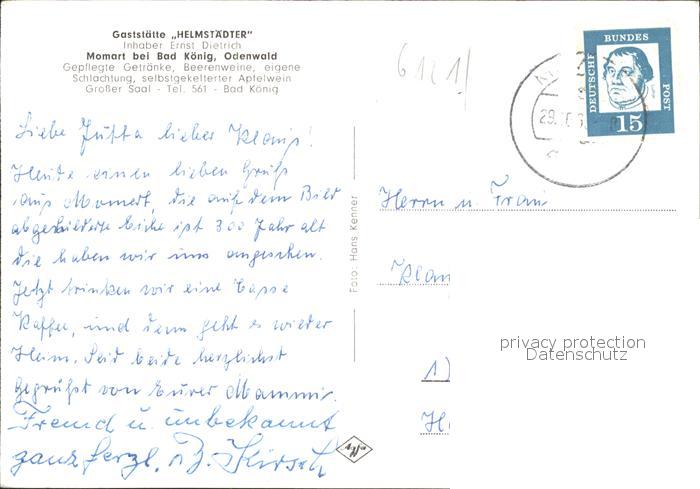 Gaststätte „HELMSTÄDTER"
Inhaber Ernst Dietrich
Momart bei Bad König, Odenwald
Gepflegte Getränke, Beerenweine, eigene
Schlachtung, selbstgekelterter Apfelwein
Großer Saal - Tel. 561 - Bad König
6121
DEUTSCHE
BUNDES
POST
15
29.
Liebe Jutta lieber Klaus!
Heute einen lieben Gruß
aus Momert, die auf dem Bild
abgebilderte Eiche ist 300 Jahr alt
die haben wir uns angesehen.
Jetzt trinken wir eine Tasse
Kaffee, und dann geht es wieder
Heim. Seid beide herzlichst
gegrüßt von Eurer Mammi.
Fremd u. unbekannt
ganz herzl. B. Kirsch
Foto: Hans Kenner
Agfa
Herrn u. Frau
Klau
privacy protection
Datenschutz